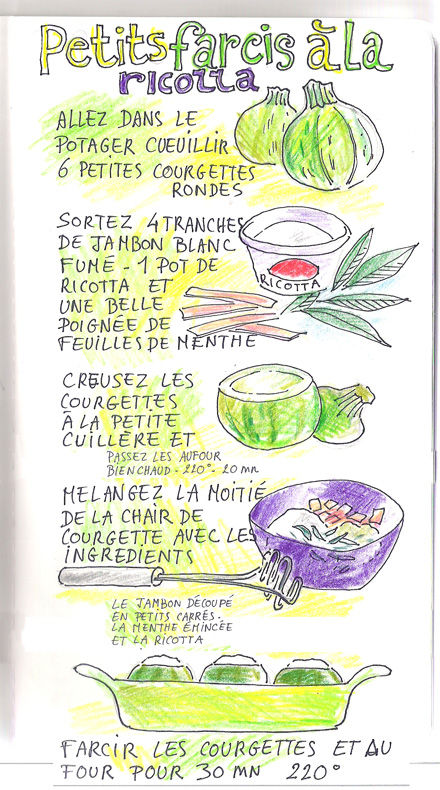 Petits farcis à la
ricotta
ALLEZ DANS LE
POTAGER CUEUILLIR
6 PETITES COURGETTES
RONDES
SORTEZ 4 TRANCHES
DE JAMBON BLANC
FUMÉ - 1 POT DE
RICOTTA ET
UNE BELLE
POIGNÉE DE
FEUILLES DE MENTHE
RICOTTA
CREUSEZ LES
COURGETTES
À LA PETITE
CUILLÈRE ET
PASSEZ LES AU FOUR
BIEN CHAUD - 210° - 20 mn
MELANGEZ LA MOITIÉ
DE LA CHAIR DE
COURGETTE AVEC LES
INGREDIENTS
LE JAMBON DÉCOUPÉ
EN PETITS CARRÉS -
LA MENTHE ÉMINCÉE
ET LA RICOTTA
FARCIR LES COURGETTES ET AU
FOUR POUR 30 MN 220°